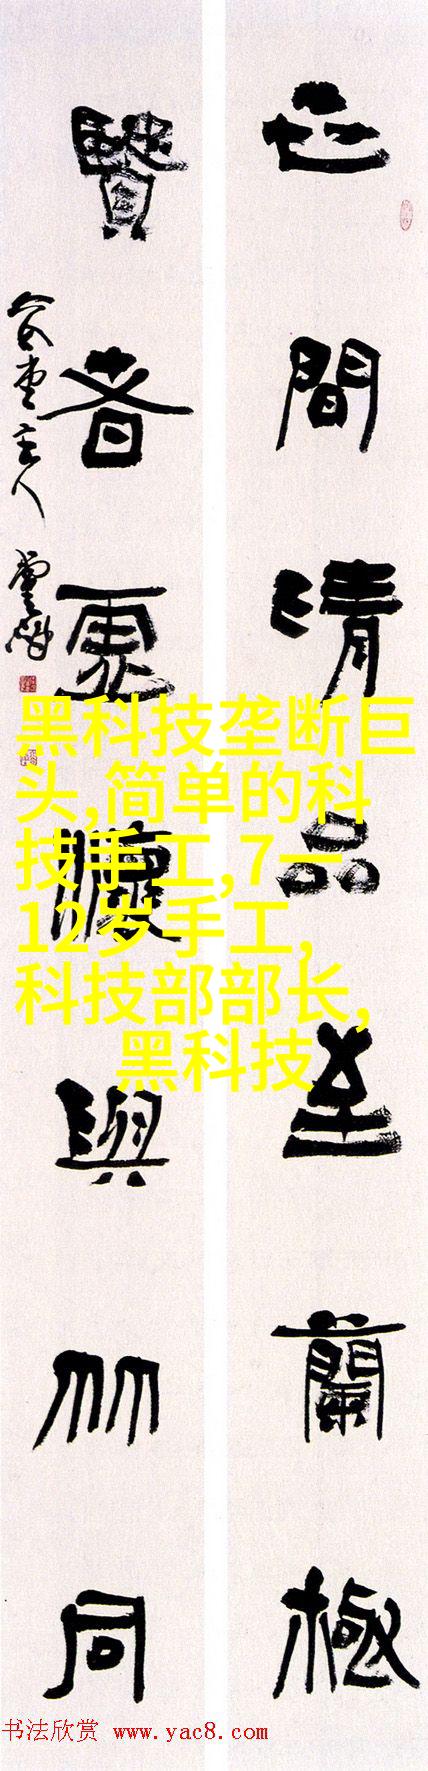 世間清品至蘭極
賢者虛懷與竹同
黑科技垄断巨
头,简单的科
技手工,7一
12岁手工,
科技部部长,
黑科技
书法欣赏 www.yac8.com